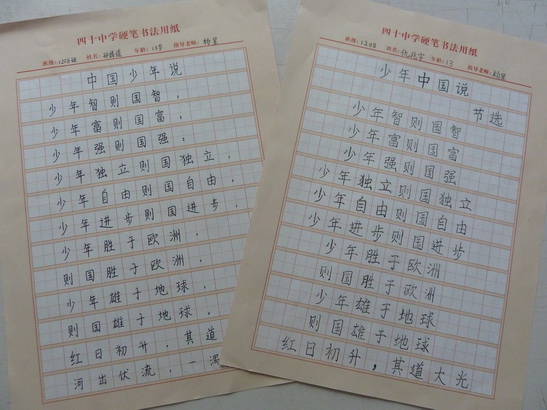 四十中学硬笔书法用纸
班级：1208班 姓名： 年龄：13岁 指导老师：杨堃
中国少年说
少年智则国智，
少年富则国富，
少年强则国强；
少年独立则国独立，
少年自由则国自由，
少年进步则国进步，
少年胜于欧洲，
则国胜于欧洲，
少年雄于地球，
则国雄于地球，
红日初升，其道
河出伏流，一泻
四十中学硬笔书法用纸
班级：1208 姓名： 年龄：13 指导老师：杨堃
少年中国说
节选
少年智则国智
少年富则国富
少年强则国强
少年独立则国独立
少年自由则国自由
少年进步则国进步
少年胜于欧洲
则国胜于欧洲
少年雄于地球
则国雄于地球
红日初升，其道大光